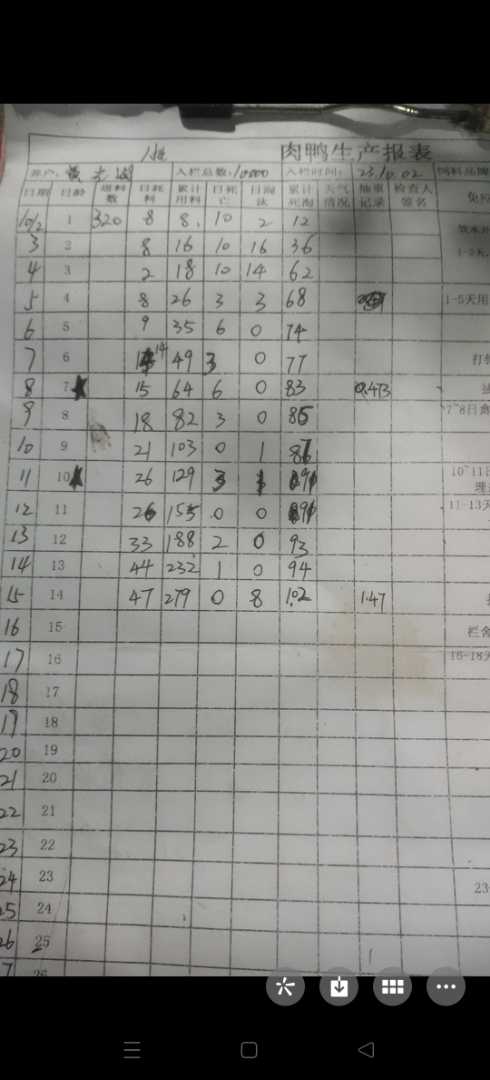 1批 肉鸭生产报表
养户: 入栏总数:10000 入栏时间: 23.10.02 饲料品牌
日期 日龄 进料数 日耗料 累计用料 日死亡 日淘汰 累计死淘 天气情况 抽重记录 检查人签名 免疫
10/2 1 320 8 8. 10 2 12
3 2 8 16 10 16 36
4 3 2 18 10 14 62
5 4 8 26 3 3 68 1-5天用
6 5 9 35 6 0 74
7 6 14 49 3 0 77
8 7 15 64 6 0 83 0.473
9 8 18 82 3 0 86 7-8日
10 9 21 103 0 1 87
11 10 26 129 3 1 91 10-11日
12 11 26 155 0 0 91 11-13天
13 12 33 188 2 0 93
14 13 44 232 1 0 94
15 14 47 279 0 8 102 1.47
16 15 栏舍
17 16 15-18天
18 17
19 18
20 19
21 20
22 21
23 22
24 23 23
25 24
26 25
7 26